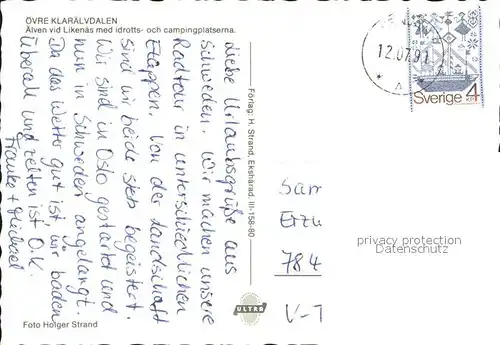 ÖVRE KLARÄLVDALEN
Älven vid Likenäs med idrotts- och campingplatserna.
Liebe Urlaubsgrüße aus
Schweden. Wir machen unsere
Radtour in unterschiedlichen
Etappen. Von der Landschaft
sind wir beide sehr begeistert.
Wir sind in Oslo gestartet und
nun in Schweden angelangt.
Da das Wetter gut ist, wir baden
überall und zelten ist O.K.
Frauke + Michael
Förlag: H. Strand, Ekshärad. III-158-80
ULTRA
Foto Holger Strand
12.07.91
A
Sverige 4
KR
San
Erzu
784
V-T
privacy protection
Versandfrei